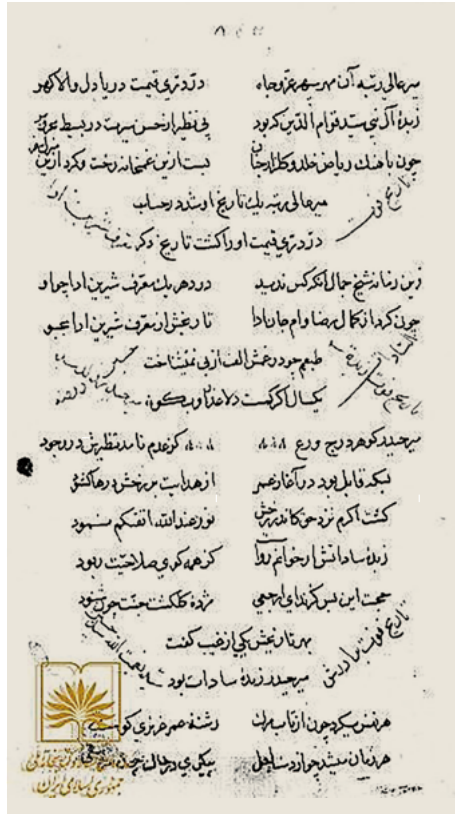 میر عالی رتبه آن مهر سپهر عز و جاه
در دری قیمت دریا دل والا گهر
زبدهٔ آل نبی سید قوام الدین که بود
بی نظیر از حسن سیرت در بسیط
چون باهنك ریاض خلد و گلزار جنان
بست ازین غمخانه رخت و کرد ازین
میر عالی رتبه یك تاریخ او شد در حساب
در دری قیمت او را گشت تاریخ دگر
تاریخ فوت
زین زمانه شیخ جمال انکه کس ندید
در دهر یك معرف شیرین ادا چو او
چون کرد از کمال رضا وام جان ادا
تاریخش از معرف شیرین ادا
طبعم چو در رخش الف از بی نمیشناخت
یکسال اگر کمست
تاریخ فوت زبدة
میر حیدر گوهر درج ورع
کز عدم نامد نظیرش در وجود
بسکه قابل بود در آغاز عمر
از هدایت بر رخش درها گشود
گشت اکرم نزد حق کاندر رخش
نور عند الله اتقیکم نمود
زبدهٔ ساداتش ار خوانم روا
کز همه گوی صلاحیت ربود
حجت این بس کز ندای ارجعی
مژدهٔ گلگشت جنت چون شنود
بهر تاریخش یکی از غیب گفت
میر حیدر زبدهٔ سادات بود
تاریخ فوت برادرش
هر نفس میگرد چون از تاب مرك
رشتهٔ عمر عزیزی
هر زمان میشد چو از دست اجل
پیکری در خاك چون